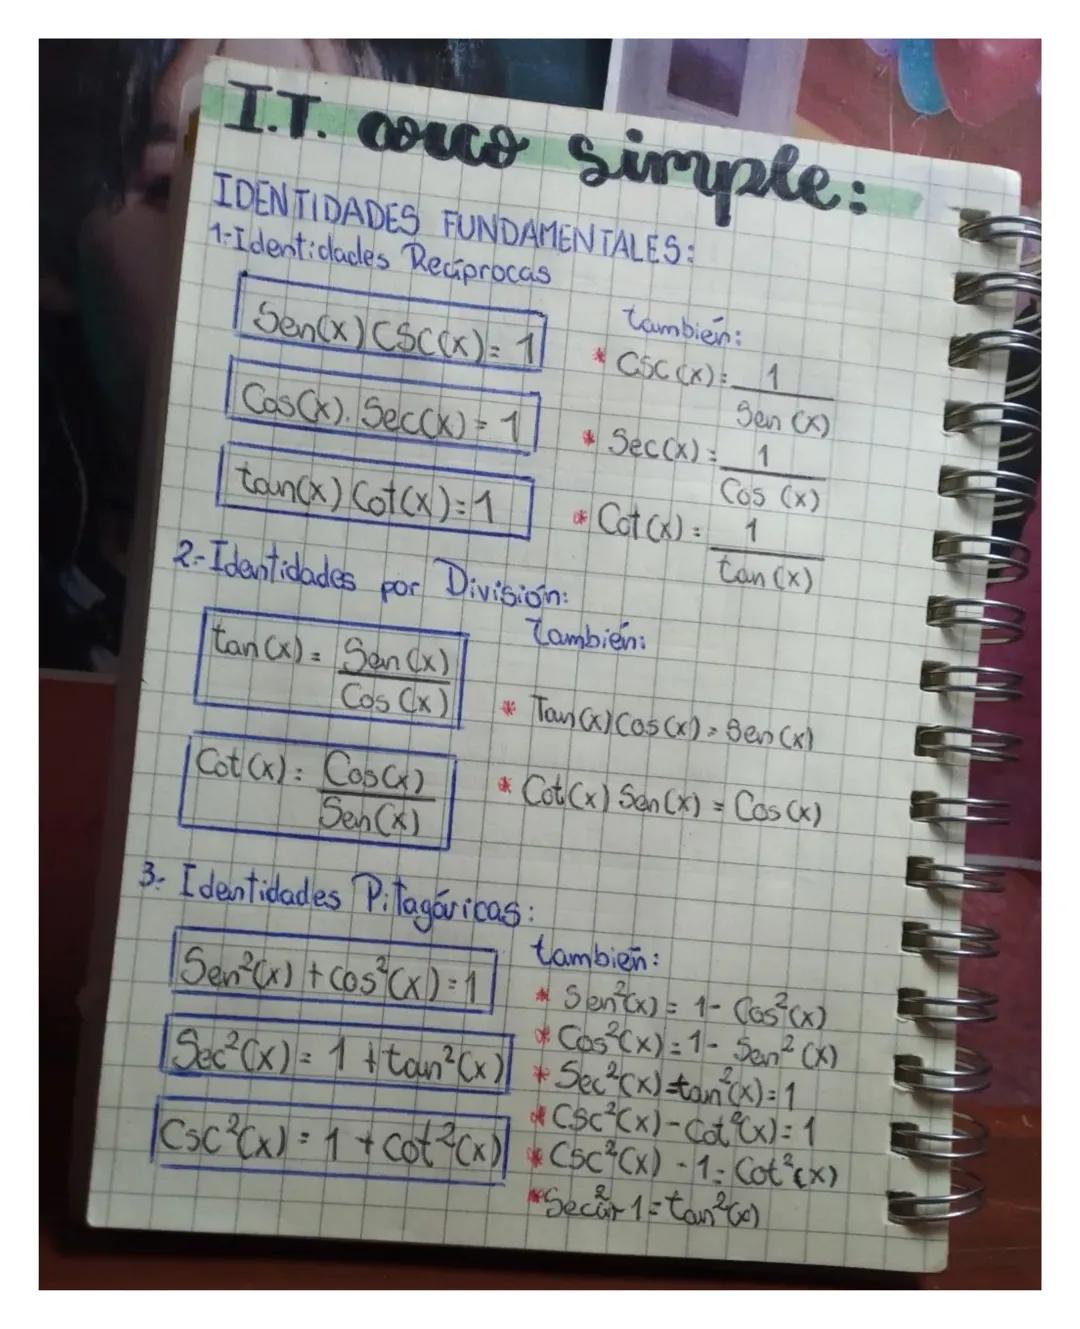 I.T. arco simple:
IDENTIDADES FUNDAMENTALES:
1-Identidades Recíprocas
Sen(x) CSC(x) = 1
Cos(x). Sec(x) = 1
tan(x) Cot(x) = 1
también:
* CSC(x) = 1
Sen (x)
* Sec(x) = 1
Cos (x)
* Cot(x) = 1
tan (x)
2.-Identidades por División:
tan(x) = Sen(x)
Cos (x)
Cot(x) = Cos(x)
Sen(x)
También:
* Tan(x) Cos(x) = Sen(x)
* Cot(x) Sen(x) = Cos(x)
3.- Identidades Pitagóricas:
Sen²(x) + cos²(x) = 1
Sec²(x) = 1 + tan²(x)
Csc²(x) = 1 + cot²(x)
también:
* Sen²(x) = 1- Cos²(x)
* Cos²(x) = 1- Sen² (x)
* Sec²(x) - tan²(x) = 1
* CSc²(x) - Cot²(x) = 1
* Csc²(x) - 1 = Cot²(x)
* Sec²(x)- 1 = tan²(x)